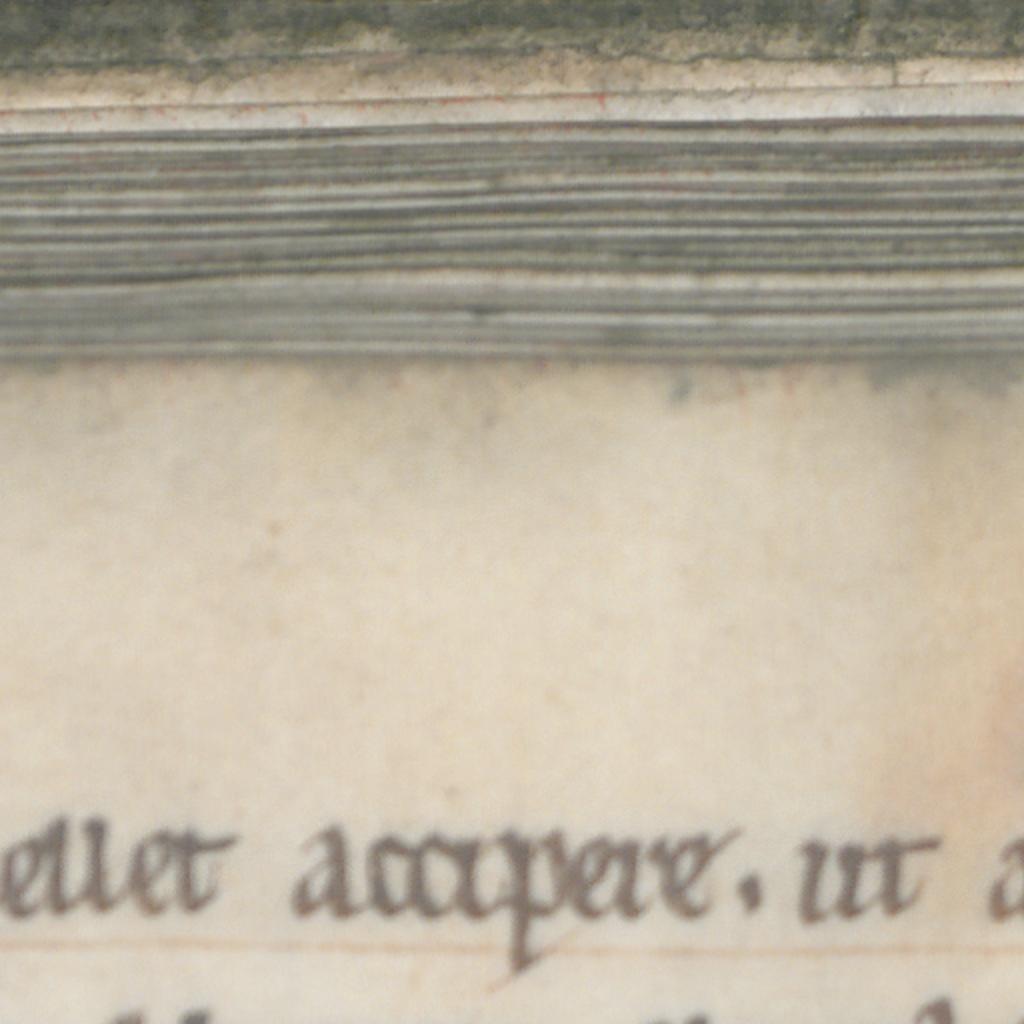 ellet accipere. ut a